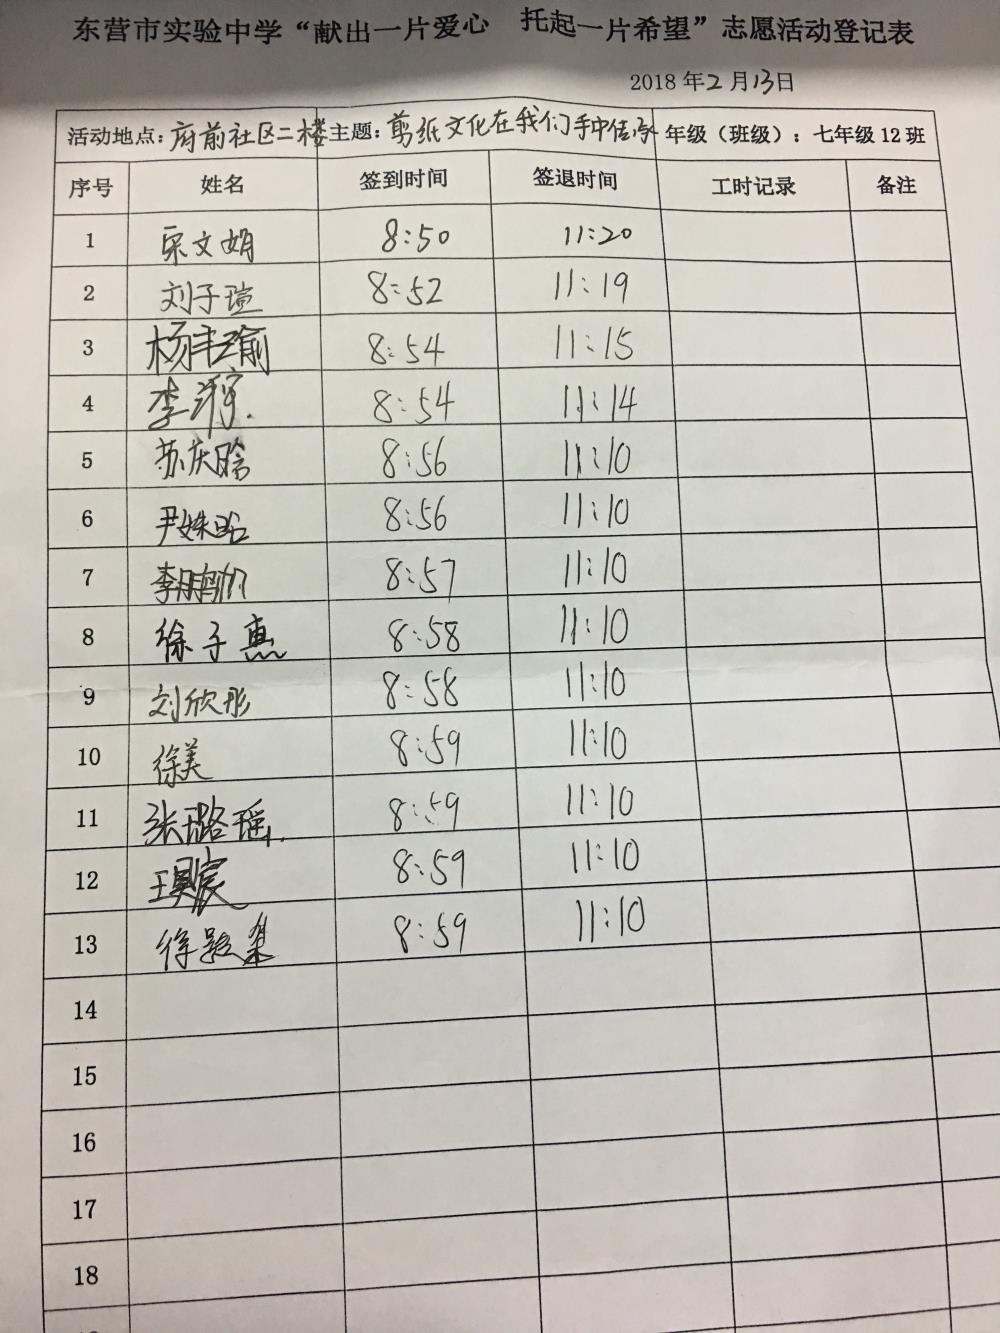 东营市实验中学“献出一片爱心 托起一片希望”志愿活动登记表
2018年2月13日
活动地点：府前社区二楼 主题：剪纸文化在我们手中传承 年级（班级）：七年级12班
序号 姓名 签到时间 签退时间 工时记录 备注
1 宋文娟 8:50 11:20
2 刘子瑄 8:52 11:19
3 杨丰瑜 8:54 11:15
4 李 8:54 11:14
5 苏庆晗 8:56 11:10
6 尹姝 8:56 11:10
7 李 8:57 11:10
8 徐子惠 8:58 11:10
9 刘欣彤 8:58 11:10
10 徐美 8:59 11:10
11 张璐瑶 8:59 11:10
12 王昊宸 8:59 11:10
13 徐 8:59 11:10
14
15
16
17
18